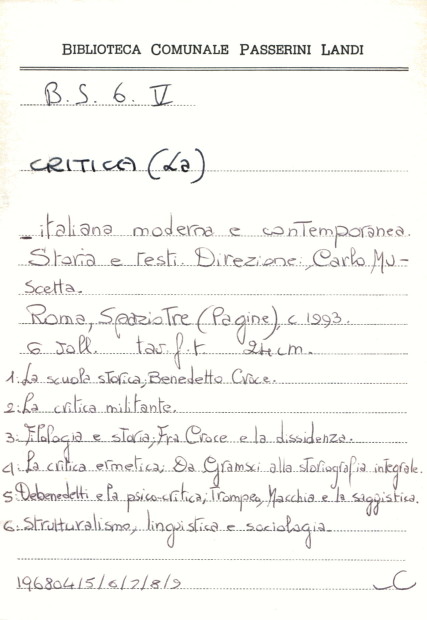 BIBLIOTECA COMUNALE PASSERINI LANDI
B. S. 6. V
CRITICA (La)
_ italiana moderna e contemporanea.
Storia e testi. Direzione: Carlo Mu-
scetta.
Roma, SpazioTre (Pagine), c 1993.
6 voll. tav. f. t 24 cm.
1. La scuola storica; Benedetto Croce.
2. La critica militante.
3. Filologia e storia; Fra Croce e la dissidenza.
4. La critica ermetica; Da Gramsci alla storiografia integrale.
5. Debenedetti e la psico-critica; Trompeo, Macchia e la saggistica.
6. Strutturalismo, linguistica e sociologia.
196804/5/6/7/8/9